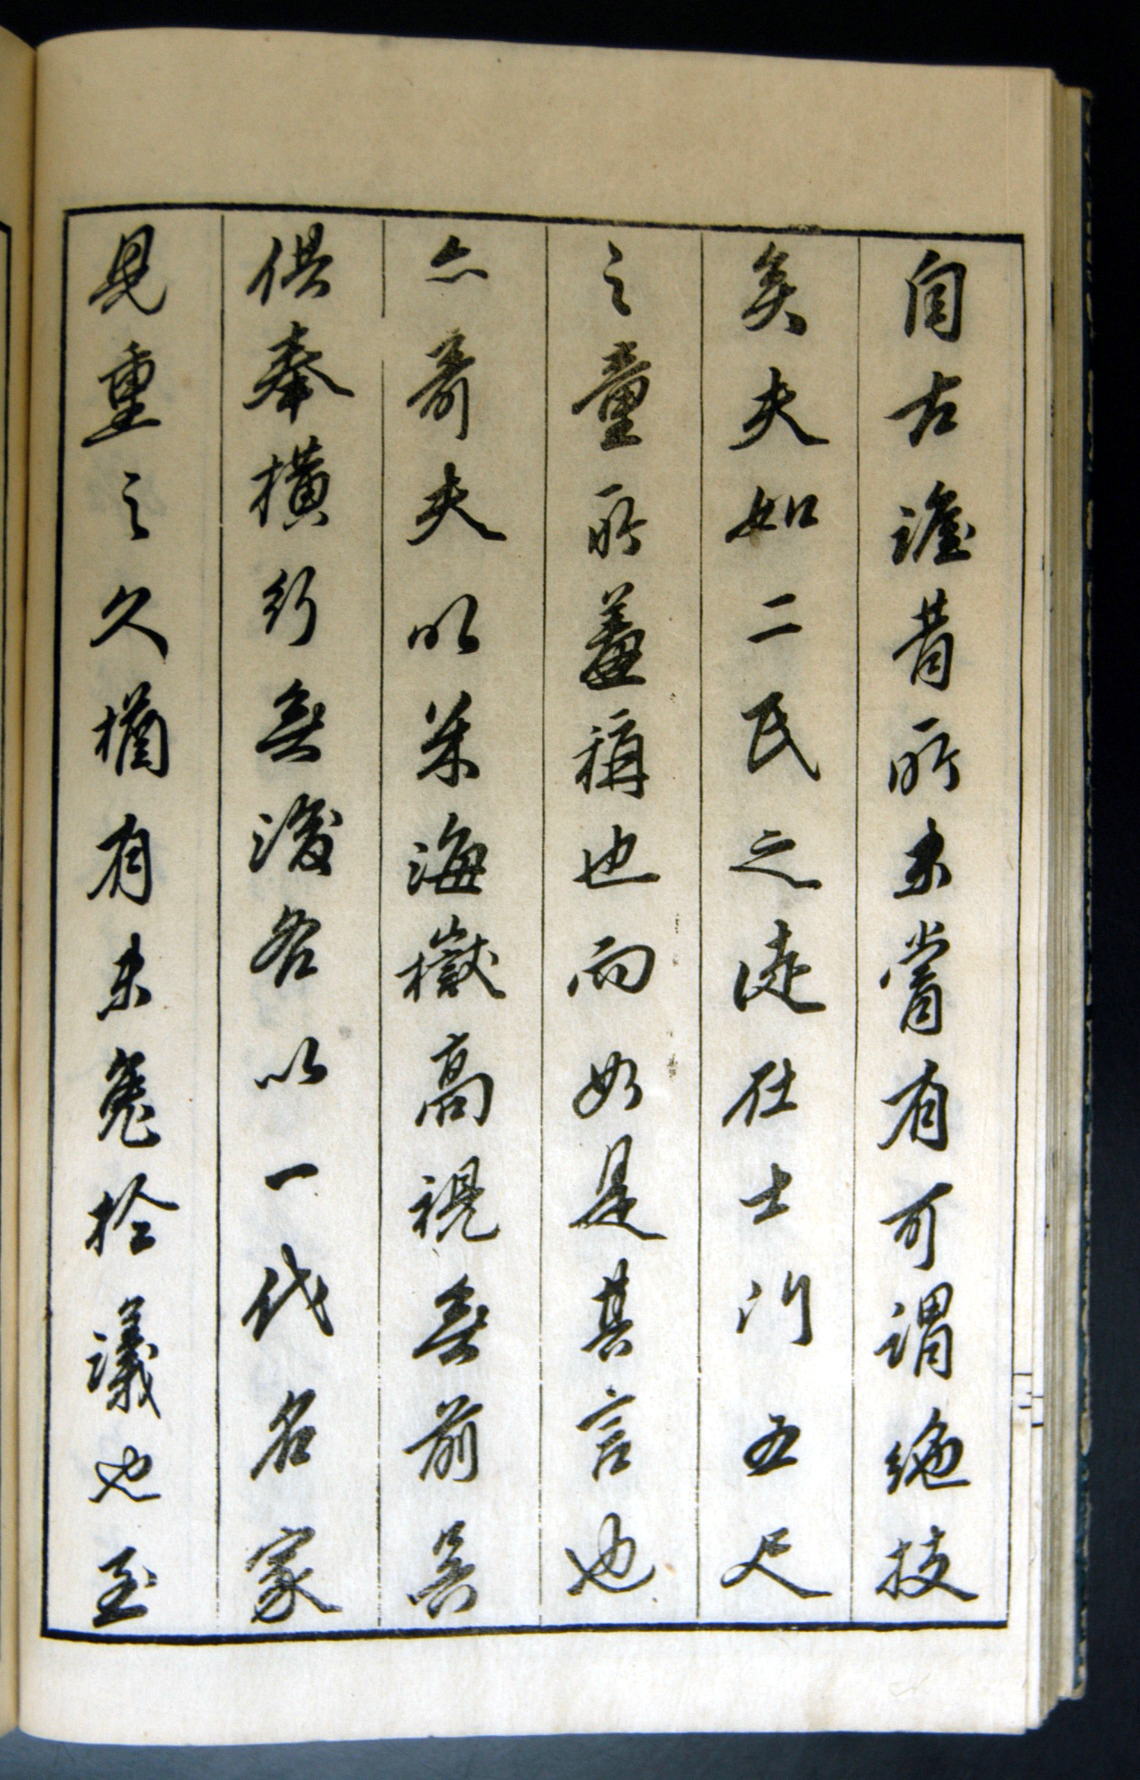 自古誰昔所未嘗有可謂絶技
矣夫如二氏之徒在士門五尺
之童所羞稱也而如是其言也
亦奇夫以米海嶽高視無前吳
供奉横行無後各以一代名家
見重之久猶有未免於議也至